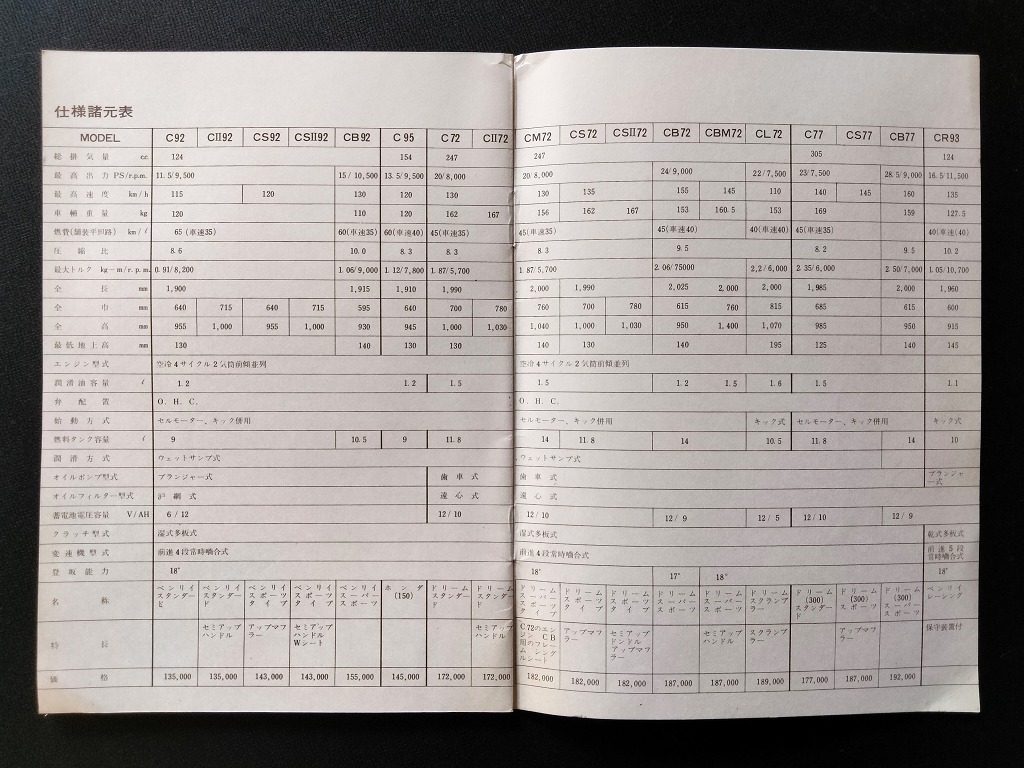 仕様諸元表
MODEL C92 CII92 CS92 CSII92 CB92 C95 C72 CII72 CM72 CS72 CSII72 CB72 CBM72 CL72 C77 CS77 CB77 CR93
総排気量 cc 124 154 247 247 305 124
最高出力 PS/r.p.m. 11.5/9,500 15/10,500 13.5/9,500 20/8,000 20/8,000 24/9,000 22/7,500 23/7,500 28.5/9,000 16.5/11,500
最高速度 km/h 115 120 130 120 130 130 135 155 145 110 140 145 160 135
車輛重量 kg 120 110 120 162 167 156 162 167 153 160.5 153 169 159 127.5
燃費(舗装平回路) km/ℓ 65(車速35) 60(車速35) 60(車速40) 45(車速35) 45(車速35) 45(車速40) 40(車速40) 45(車速35) 40(車速40)
圧縮比 8.6 10.0 8.3 8.3 8.3 9.5 8.2 9.5 10.2
最大トルク kg-m/r.p.m. 0.91/8,200 1.06/9,000 1.12/7,800 1.87/5,700 1.87/5,700 2.06/75000 2,2/6,000 2.35/6,000 2.50/7,000 1.05/10,700
全長 mm 1,900 1,915 1,910 1,990 2,000 1,990 2,025 2,000 2,000 1,985 2,000 1,960
全巾 mm 640 715 640 715 595 640 700 780 760 700 780 615 760 815 685 615 600
全高 mm 955 1,000 955 1,000 930 945 1,000 1,030 1,040 1,000 1,030 950 1,400 1,070 985 950 915
最低地上高 mm 130 140 130 130 140 130 140 195 125 140 145
エンジン型式 空冷4サイクル2気筒前傾並列 空冷4サイクル2気筒前傾並列
潤滑油容量 ℓ 1.2 1.2 1.5 1.5 1.2 1.5 1.6 1.5 1.1
弁配置 O.H.C. O.H.C.
始動方式 セルモーター、キック併用 セルモーター、キック併用 キック式 セルモーター、キック併用 キック式
燃料タンク容量 ℓ 9 10.5 9 11.8 14 11.8 14 10.5 11.8 14 10
潤滑方式 ウェットサンプ式 ウェットサンプ式
オイルポンプ型式 プランジャー式 歯車式 歯車式 プランジャー式
オイルフィルター型式 沪網式 遠心式 遠心式
蓄電池電圧容量 V/AH 6/12 12/10 12/10 12/9 12/5 12/10 12/9
クラッチ型式 湿式多板式 湿式多板式 乾式多板式
変速機型式 前進4段常時噛合式 前進4段常時噛合式 前進5段常時噛合式
登坂能力 18° 18° 17° 18° 18°
名称 ベンリイスタンダード ベンリイスタンダード ベンリイスポーツタイプ ベンリイスポーツタイプ ベンリイスーパースポーツ ホンダ(150) ドリームスタンダード ドリームスタンダード ドリームスーパースポーツタイプ ドリームスポーツタイプ ドリームスポーツタイプ ドリームスーパースポーツ ドリームスーパースポーツ ドリームスクランブラー ドリーム(300)スタンダード ドリーム(300)スポーツ ドリーム(300)スーパースポーツ ベンリイレーシング
特長 セミアップハンドル アップマフラー セミアップハンドルWシート セミアップハンドル C72のエンジンCB用のフレームシングルシート アップマフラー セミアップドンドルアップマフラー セミアップハンドル スクランブラー アップマフラー 保守装置付
価格 135,000 135,000 143,000 143,000 155,000 145,000 172,000 172,000 182,000 182,000 182,000 187,000 187,000 189,000 177,000 187,000 192,000